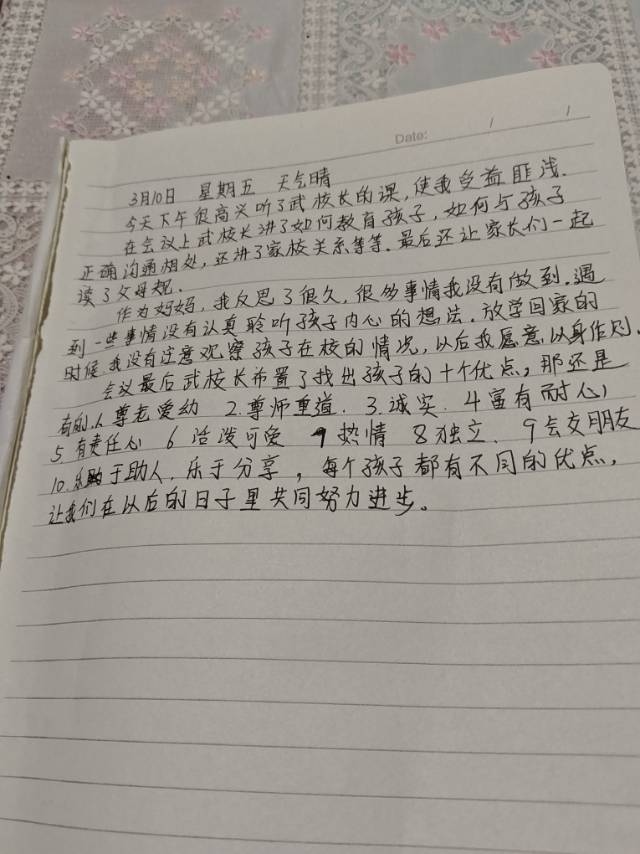 Date: / /
3月10日 星期五 天气晴
今天下午很高兴听了武校长的课,使我受益匪浅.
在会议上武校长讲了如何教育孩子,如何与孩子
正确沟通相处,还讲了家校关系等等.最后还让家长们一起
读了父母规.
作为妈妈,我反思了很久,很多事情我没有做到.遇
到一些事情没有认真聆听孩子内心的想法.放学回家的
时候,我没有注意观察孩子在校的情况,以后我愿意以身作则.
会议最后武校长布置了找出孩子的十个优点,那还是
有的,1.尊老爱幼 2.尊师重道. 3.诚实. 4富有耐心
5.有责任心 6 活泼可爱 7 热情 8独立. 9会交朋友
10.乐于助人,乐于分享,每个孩子都有不同的优点,
让我们在以后的日子里共同努力进步。